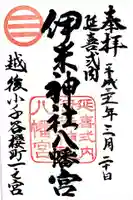 奉拝
平成三十一年二月二十日
延喜式内
伊米神社八幡宮
越後小千谷桜町一之宮
延喜式内
八幡宮